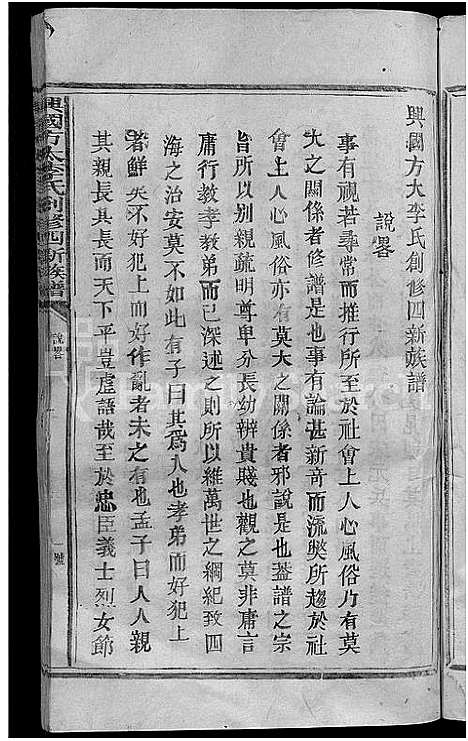 興國方大李氏創修四新族譜
說畧
事有視若尋常而推行所至於社會上人心風俗乃有莫
大之關係者修譜是也事有論甚新奇而流獘所趨於社
會上人心風俗亦有莫大之關係者邪說是也葢譜之宗
旨所以別親疏明尊卑分長幼辨貴賤也觀之莫非庸言
庸行教孝教弟而已深述之則所以維萬世之綱紀致四
海之治安莫不如此有子曰其為人也孝弟而好犯上
者鮮矣不好犯上而好作亂者未之有也孟子曰人人親
其親長其長而天下平豈虛語哉至於忠臣義士烈女節
興國方大李氏創修四新族譜
說畧
一號